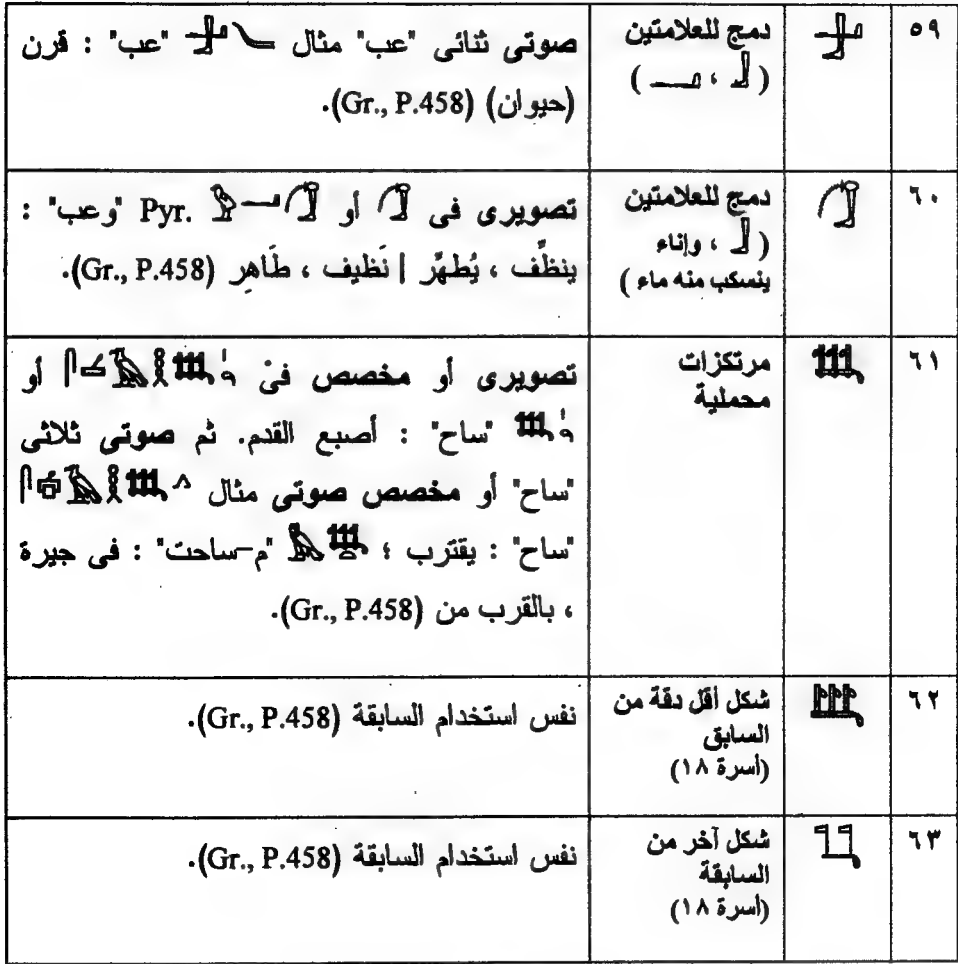 ٥٩ 𓃁 دمج للعلامتين
( 𓃀 ، 𓂝 )
صوتى ثنائى "عب" مثال 𓃁𓄏 "عب" : قرن
(حيوان) (Gr., P.458).
٦٠ 𓃂 دمج للعلامتين
( 𓃀 ، وإناء
ينسكب منه ماء )
تصويرى فى 𓃂 أو 𓃂𓂝𓅱 Pyr. "وعب" :
ينظِّف ، يُطهِّر | نَظيف ، طَاهِر (Gr., P.458).
٦١ 𓃃 مرتكزات
محملية
تصويرى أو مخصص فى أو
"ساح" : أصبع القدم. ثم صوتى ثلاثى
"ساح" أو مخصص صوتى مثال
"ساح" : يقترب ؛ "م-ساحت" : فى جيرة
، بالقرب من (Gr., P.458).
٦٢ 𓃄 شكل أقل دقة من
السابق
(أسرة ١٨)
نفس استخدام السابقة (Gr., P.458).
٦٣ 𓃅 شكل آخر من
السابقة
(أسرة ١٨)
نفس استخدام السابقة (Gr., P.458).